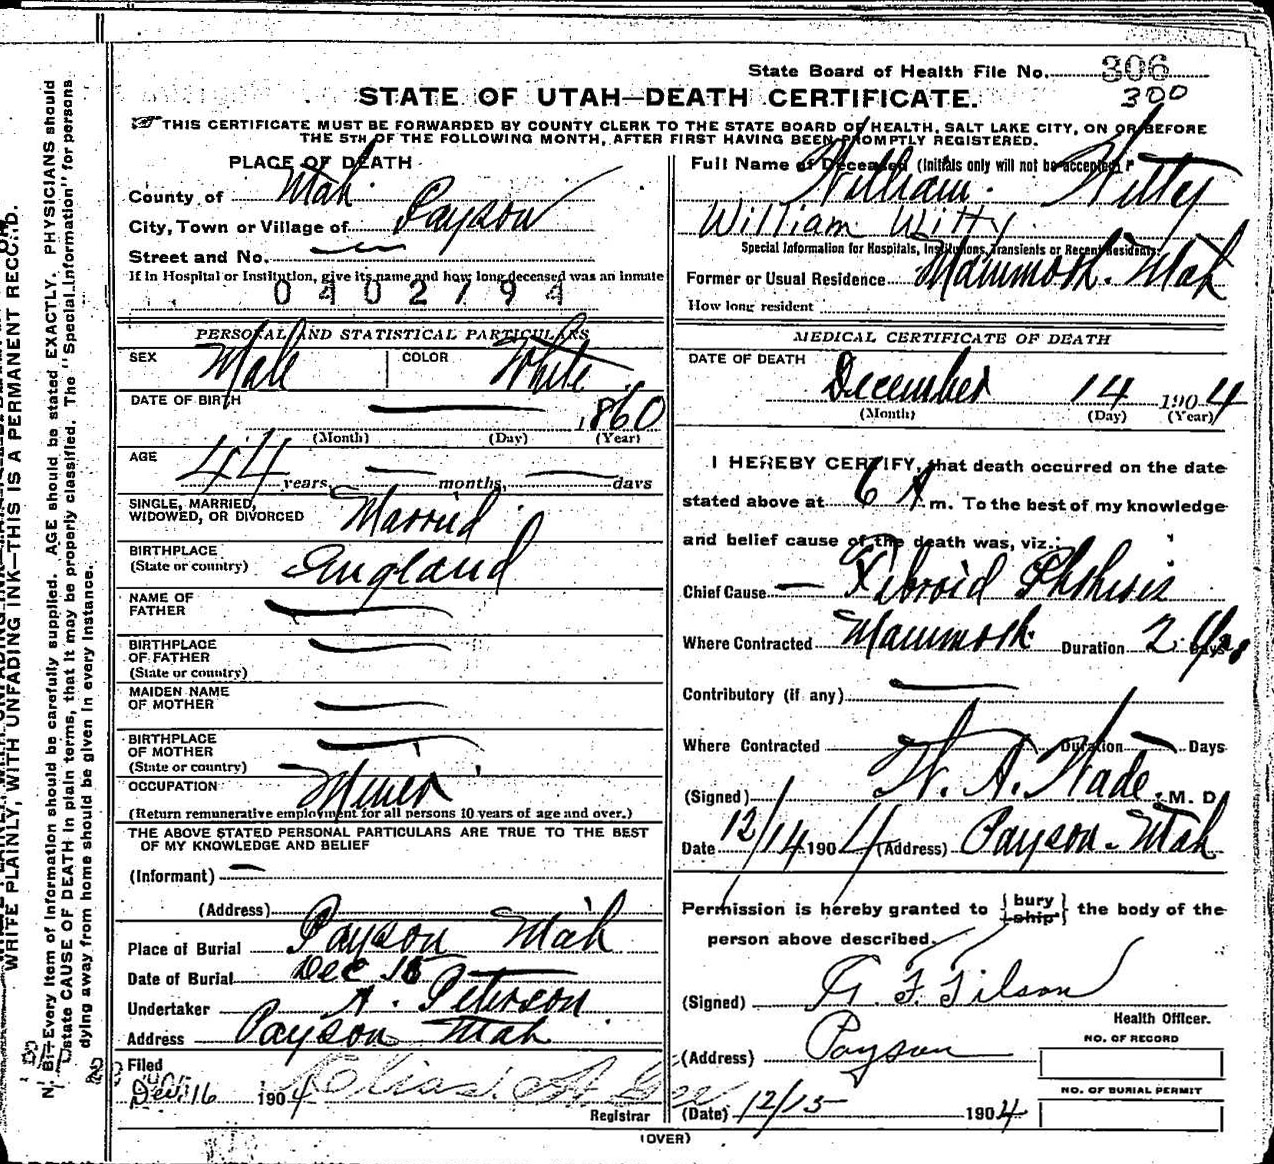 State Board of Health File No. 306
300
STATE OF UTAH—DEATH CERTIFICATE.
THIS CERTIFICATE MUST BE FORWARDED BY COUNTY CLERK TO THE STATE BOARD OF HEALTH, SALT LAKE CITY, ON OR BEFORE
THE 5TH OF THE FOLLOWING MONTH, AFTER FIRST HAVING BEEN PROMPTLY REGISTERED.
PLACE OF DEATH
County of Utah
City, Town or Village of Payson
Street and No.
If in Hospital or Institution, give its name and how long deceased was an inmate
0402794
PERSONAL AND STATISTICAL PARTICULARS
SEX Male COLOR White
DATE OF BIRTH 1860
(Month) (Day) (Year)
AGE 44 years, — months, — days
SINGLE, MARRIED,
WIDOWED, OR DIVORCED Married
BIRTHPLACE
(State or country) England
NAME OF
FATHER —
BIRTHPLACE
OF FATHER —
(State or country)
MAIDEN NAME
OF MOTHER —
BIRTHPLACE
OF MOTHER —
(State or country)
OCCUPATION Miner
(Return remunerative employment for all persons 10 years of age and over.)
THE ABOVE STATED PERSONAL PARTICULARS ARE TRUE TO THE BEST
OF MY KNOWLEDGE AND BELIEF
(Informant) —
(Address)
Place of Burial Payson Utah
Date of Burial Dec 15
Undertaker A. Peterson
Address Payson Utah
Filed
Dec. 16 1904 Elias A Gee
Registrar
Full Name of Deceased (Initials only will not be accepted.)
William Witty
William Witty
Special Information for Hospitals, Institutions, Transients or Recent Residents:
Former or Usual Residence Mammoth. Utah
How long resident
MEDICAL CERTIFICATE OF DEATH
DATE OF DEATH
December 14 1904
(Month) (Day) (Year)
I HEREBY CERTIFY, that death occurred on the date
stated above at 6 A m. To the best of my knowledge
and belief cause of the death was, viz.:
Chief Cause — Fibroid Phthisis
Where Contracted Mammoth Duration 2 Yrs Days
Contributory (if any) —
Where Contracted Duration — Days
(Signed) W. A. Wade, M. D.
Date 12/14 1904 (Address) Payson - Utah
Permission is hereby granted to { bury ship } the body of the
person above described.
(Signed) G. F. Tilson
Health Officer.
(Address) Payson
NO. OF RECORD
NO. OF BURIAL PERMIT
(Date) 12/15 1904
(OVER)
WRITE PLAINLY, WITH UNFADING INK—THIS IS A PERMANENT RECORD.
N. B.—Every item of information should be carefully supplied. AGE should be stated EXACTLY. PHYSICIANS should
state CAUSE OF DEATH in plain terms, that it may be properly classified. The "Special Information" for persons
dying away from home should be given in every instance.